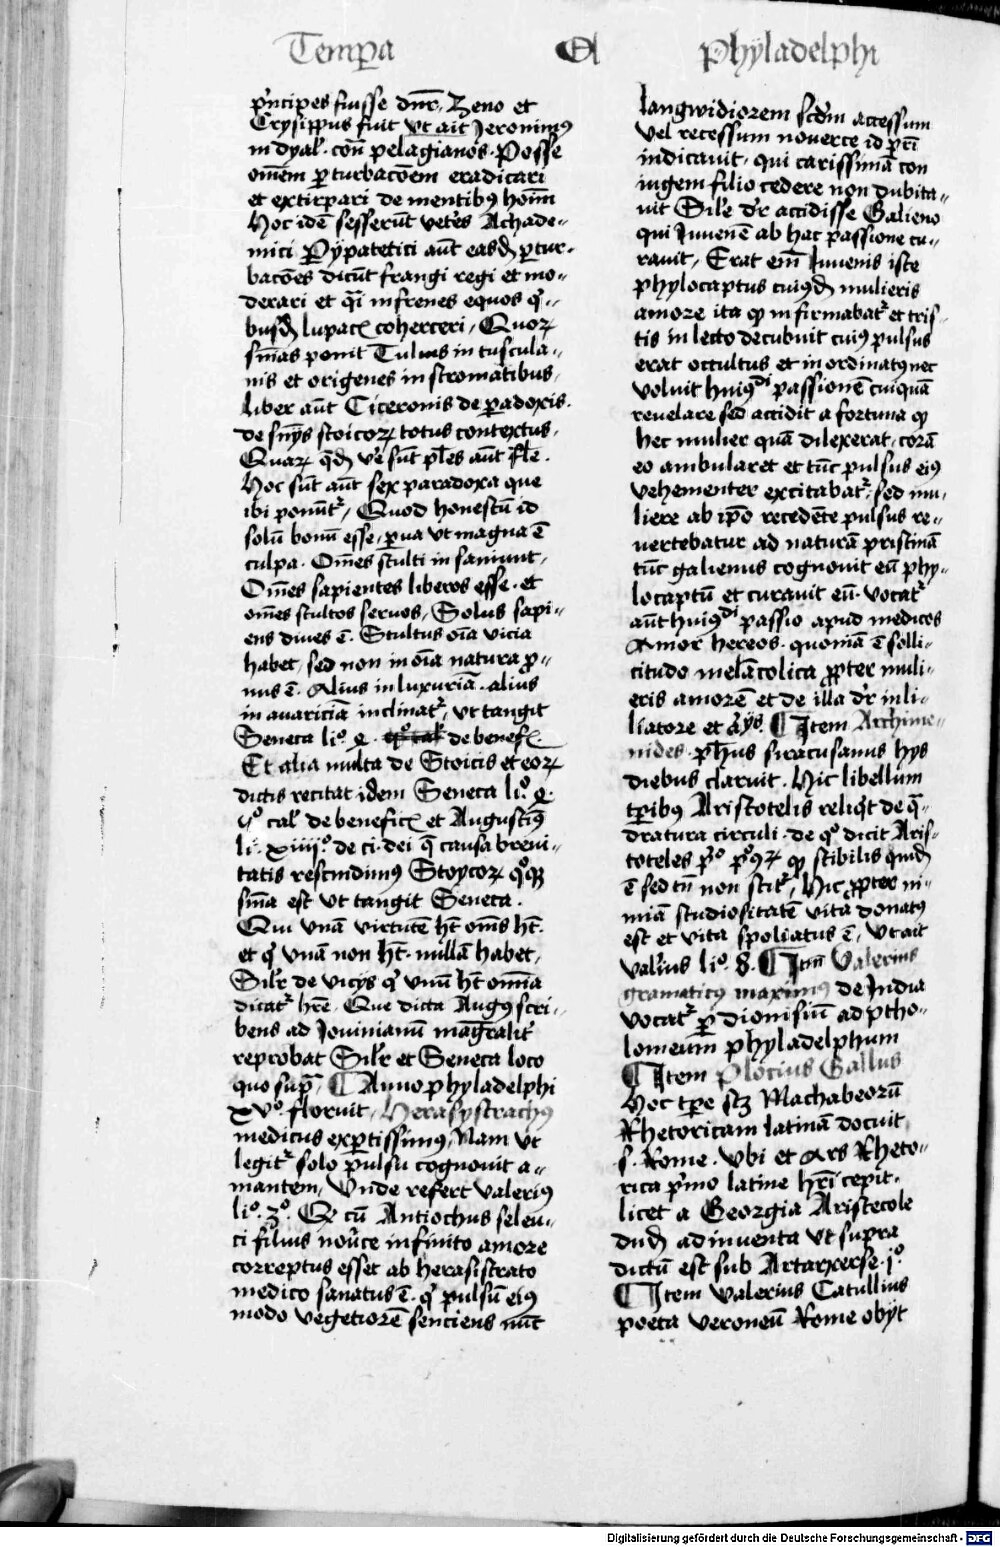 Tempa Et Phyladelphi
p'ncipes fuisse dnr̄. Zeno et
Crysippus fuit vt ait Jeronimꝰ
in dyal'. cont̄ pelagianos. Posse
om̄em ꝑturbacōem eradicari
et extirpari de mentibꝰ hoīm
Hoc idē sesserūt vetēs Achade-
mici Pypatetici aut̄ easdē ꝑtur-
bacōes dicūt frangi regi et mo-
derari et q̄i infrenes equos q'-
busdā lupatꝭ coherceri, Quoꝝ
sn̄ias ponit Tulius in tuscula-
nis et origenes in stromatibus.
liber aut̄ Ciceronis de ꝑadoxis.
de sn̄ijs stoicoꝝ totus contextus.
Quaꝝ q̄dā ve' sūt pl'es aut̄ fl'e.
Hoc sūt aut̄ sex paradoxa que
ibi ponūt', Quod honestū id
solū bonū esse, ꝑua vt magna ē
culpa. Om̄es stulti insaniunt,
Om̄es sapientes liberos esse. et
om̄es stultos seruos, Solus sapi-
ens diues ē. Stultus oīa vicia
habet, sed non in oīa natura ꝓ-
nus ē. Alius in luxuriā. alius
in auariciā inclinat', vt tangit
Seneca li°. 4. de benefꝭ.
Et alia multa de Stoicis et eoꝝ
dictis recitat idem Seneca li°. 4.
5° cal' de beneficꝭ et Augustiꝰ
li. xiiij°. de ci. dei q̄ causa breui-
tatis rescindimꝰ Stoycoꝝ q°qꝫ
sn̄ia est vt tangit Seneca.
Qui vnā virtutē ht̄ om̄s ht̄.
et q' vnā non ht̄. nullā habet,
Sil'r de vicijs q' vnū ht̄ om̄ia
dicat' hr̄e. Que dicta Augꝰ scri-
bens ad Jouinianū magr̄alit'
reprobat Sil'r et Seneca loco
quo supra. Anno phyladelphi
xv°. floruit, Herasystrachꝰ
medicus exꝑtissimꝰ, Nam vt
legit' solo pulsu cognouit a-
mantem, Vnde refert Valeriꝰ
li°. 3°. Qꝫ cū Antiochus seleu-
ci filius nouerce infinito amore
correptus esset ab herasistrato
medico sanatus ē. q' pulsū eiꝰ
modo vegetiorē senciens nūc
langwidiorem scdm accessum
vel recessum nouerce id pr̄i
indicauit, qui carissimā con
iugem filio cedere non dubita-
uit Sil'e dr̄ accidisse Galieno
qui Juuenē ab hac passione cu-
rauit, Erat eīm Juuenis iste
phylocaptus cuiꝰdā mulieris
amore ita qꝫ infirmabat' et tris-
tis in lecto decubuit cuiꝰ pulsus
erat occultus et inordinatꝰ nec
voluit huiꝰdi passionē cuiquā
reuelare sed accidit a fortuna qꝫ
hec mulier quā dilexerat, corā
eo ambularet et tūc pulsus eiꝰ
vehementer excitabat', sed mu-
liere ab ip̄o recedēte pulsus re-
uertebatur ad naturā pristinā
tūc galienus cognouit eū phy-
locaptū et curauit eū. vocat'
aut̄ huiꝰdi passio apud medicos
Amor hereos. quoniā ē solli-
citudo melācolica ꝓpter muli-
eris amorē et de illa dr̄ in li-
liatore et alijs. Item Archime-
nides. ph'us siracusanus hijs
diebus claruit. Hic libellum
tꝑibꝰ Aristotelis reliq't de q̄-
dratura circuli. de q° dicit Aris-
toteles p°. qꝫ scibilis quidē
ē sed tn̄ non scit', Hic ꝓpter ni-
miā studiositatē vita donatus
est et vita spoliatus ē, vt ait
valerius li°. 8. Item Valerius
gramaticꝰ maximꝰ de India
vocat' ꝑ dionisiū ad ptho-
lomeum phyladelphum
Item Plocius Gallus
Hoc tꝑe scꝫ Machabeorū
Rhetoricam latinā docuit
s. Rome. Vbi et Ars Rheto-
rica p'mo latine hr̄i cepit.
licet a Georgia Aristecole
dudū adinuenta vt supra
dictū est sub Artaxerse. j°.
Item Valerius Catullus
poeta veroneñ Rome obijt
Digitalisierung gefördert durch die Deutsche Forschungsgemeinschaft - DFG